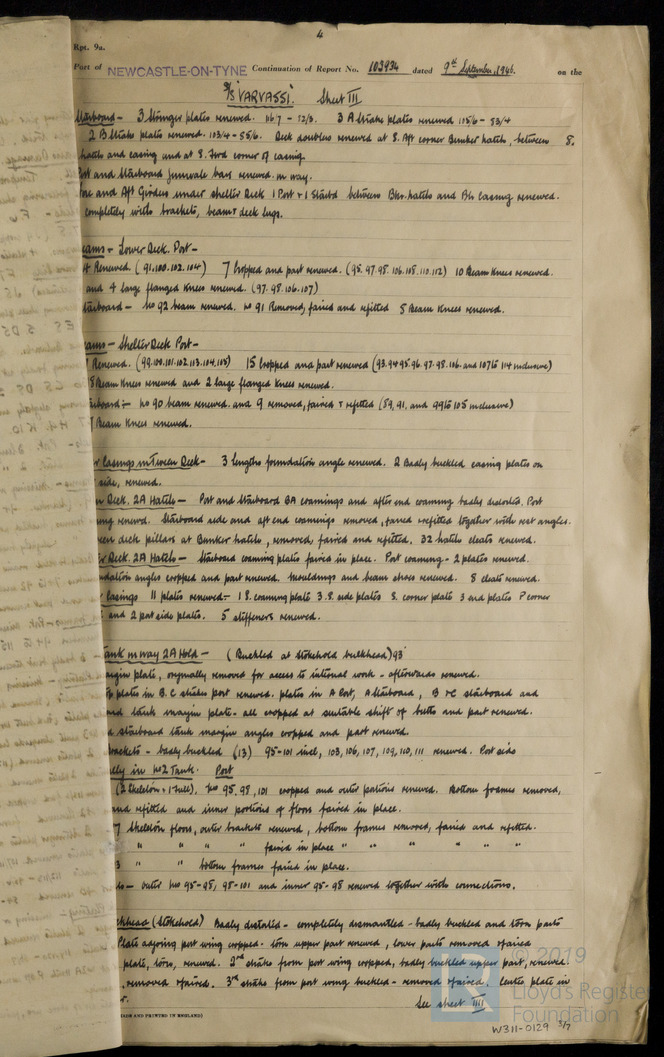 4
Rpt. 9a.
Part of NEWCASTLE-ON-TYNE Continuation of Report No. 103934 dated 9th September, 1946. on the
S/S VARVASSI. Sheet III
Starboard - 3 Stringer plates renewed. 116/7 - 72/3. 3 A Strake plates renewed 115/6 - 83/4
2 B Strake plates renewed. 103/4 - 85/6. Deck doublers renewed at S. Aft corner Bunker hatch, between S.
hatch and casing and at S. Fwd corner of casing.
and Starboard Gunwale bars renewed in way.
and Aft Girders under shelter Deck 1 Port + 1 Starbd between Bkr. hatch and Blr Casing renewed.
completely with brackets, beam + deck lugs.
Beams - Lower Deck. Port -
4 Renewed. (91.100.102.104) 7 Cropped and part renewed. (95.97.98.106.108.110.112) 10 Beam Knees renewed.
and 4 large flanged Knees renewed. (97.98.106.107)
Starboard - No 92 beam renewed. No 91 Removed, faired and refitted 5 Beam Knees renewed.
Beams - Shelter Deck Port -
Renewed. (99.100.101.102.113.104.105) 15 Cropped and part renewed (93.94.95.96.97.98.106. and 107 to 114 inclusive)
8 Beam Knees renewed and 2 large flanged Knees renewed.
Starboard :- No 90 beam renewed. and 9 removed, faired + refitted (89, 91, and 99 to 105 inclusive)
7 Beam Knees renewed.
Casings in Tween Deck - 3 lengths foundation angle renewed. 2 Badly buckled casing plates on
side, renewed.
Deck. 2A Hatch - Port and Starboard BA coamings and after end coaming badly distorted. Port
renewed. Starboard side and aft end coamings removed, faired + refitted together with rest angles.
deck pillars at Bunker hatch, removed, faired and refitted. 32 hatch cleats renewed.
Deck. 2A Hatch - Starboard coaming plates faired in place. Port coaming - 2 plates renewed.
angles cropped and part renewed. Mouldings and beam shoes renewed. 8 cleats renewed.
Casings 11 plates renewed :- 1 S. coaming plate 3. S. side plates S. corner plate 3 end plates P corner
and 2 port side plates. 5 stiffeners renewed.
Tank in way 2A Hold - (Buckled at Stokehold bulkhead) 93
plate, originally removed for access to internal work - afterwards renewed.
plates in B. C strakes port renewed. plates in A Port, A Starboard, B + C starboard and
tank margin plate - all cropped at suitable shift of butts and part renewed.
Starboard tank margin angles cropped and part renewed.
brackets - badly buckled (13) 95-101 incl, 103, 106, 107, 109, 110, 111 renewed. Port side
in No 2 Tank. Port
(2 Skeleton + 1 full). No 95, 98, 101 cropped and outer portions renewed. Bottom frames removed,
and refitted and inner portions of floors faired in place.
7 Skeleton floors, outer brackets renewed, bottom frames removed, faired and refitted.
" " " " faired in place " " " " "
3 " " bottom frames faired in place.
- outer No 95-98, 98-101 and inner 95-98 renewed together with connections.
(Stokehold) Badly distorted - completely dismantled - badly buckled and torn parts
Plate adjoing port wing cropped. torn upper part renewed, lower parts removed + faired
plate, torn, renewed. 2nd strake from port wing cropped, badly buckled upper part, renewed.
removed + faired. 3rd strake from port wing buckled - removed + faired. Centre plate in
See sheet IIII
AND PRINTED IN ENGLAND)
© 2019
Lloyd's Register
Foundation
W311-0129 3/7